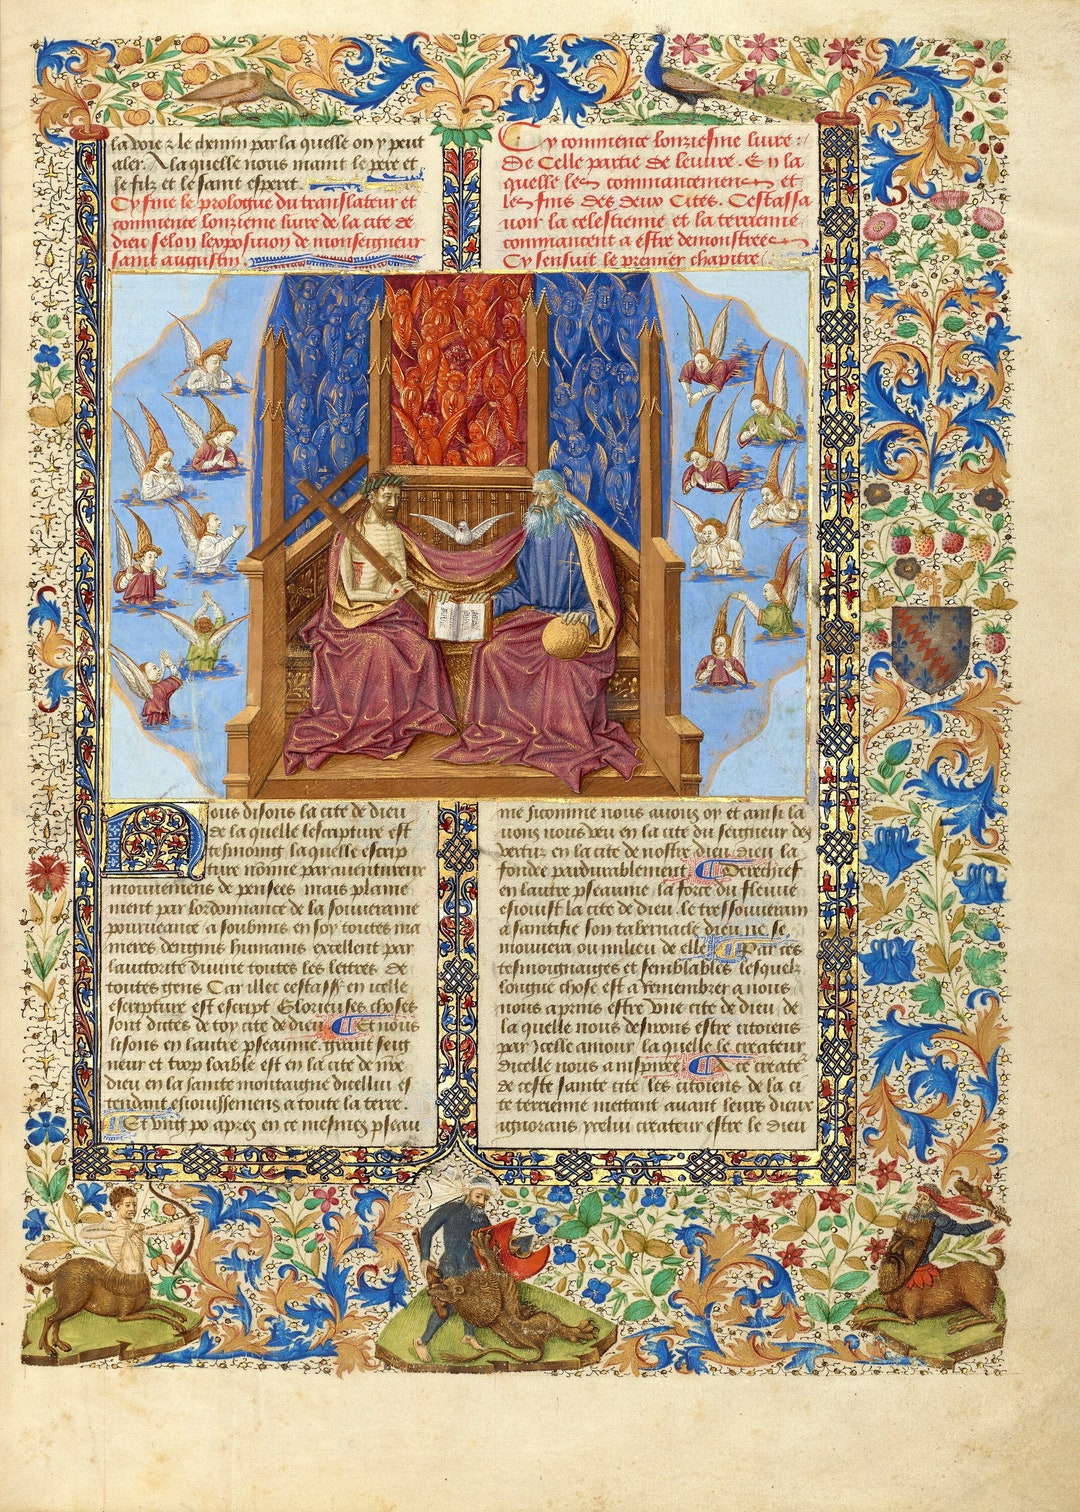 la voie & le chemin par la quelle on y peut
aler. A la quelle nous maint le pere et
le filz et le saint esperit.
Cy fine le prologue du translateur et
commence lonzieme livre de la cite de
dieu selon lexposicion de monseigneur
saint augustin.
Cy commence lonziesme livre
De celle partie de leuvre. En la
quelle les commancemens et
les fins des deux Cites. Cestassa
voir la celestienne et la terrienne
commancent a estre demonstrees
Cy sensuit le premier chapitre
Nous disons la cite de dieu
de la quelle lescripture est
tesmoing la quelle escrip
ture nōme par aventureux
mouvemens de pensees mais plaine
ment par lordonnance de la souveraine
pourveance a soubmis en soy toutes ma
nieres dengins humains excellent par
lautorite divine toutes les lettres de
toutes gens Car illec cestass en icelle
escripture est escript Glorieuses choses
sont dictes de toy cite de dieu Et nous
lisons en lautre pseaume. grant seig
neur et trop loable est en la cite de nr̄e
dieu en la sainte montaigne dicellui es
tendant esjouissemens a toute la terre.
Et ung po apres en ce mesmes pseau
me sicomme nous avons oy et ainsi la
vons nous veu en la cite du seigneur des
vertuz en la cite de nostre dieu. dieu la
fondee pardurablement Derechief
en lautre pseaume. la force du fleuve
esjouist la cite de dieu. le tressouverain
a saintifie son tabernacle dieu ne se
mouvera ou milieu de elle Par ces
tesmoignaiges et semblables lesquelz
longue chose est a remembrer a nous
nous aprins estre une cite de dieu de
la quelle nous desirons estre citoiens
par ycelle amour la quelle le createur
dicelle nous a inspiree A ce create
de ceste sainte cite les citoiens de la ci
te terrienne mettant avant leurs dieux
ignorans ycelui createur estre le dieu